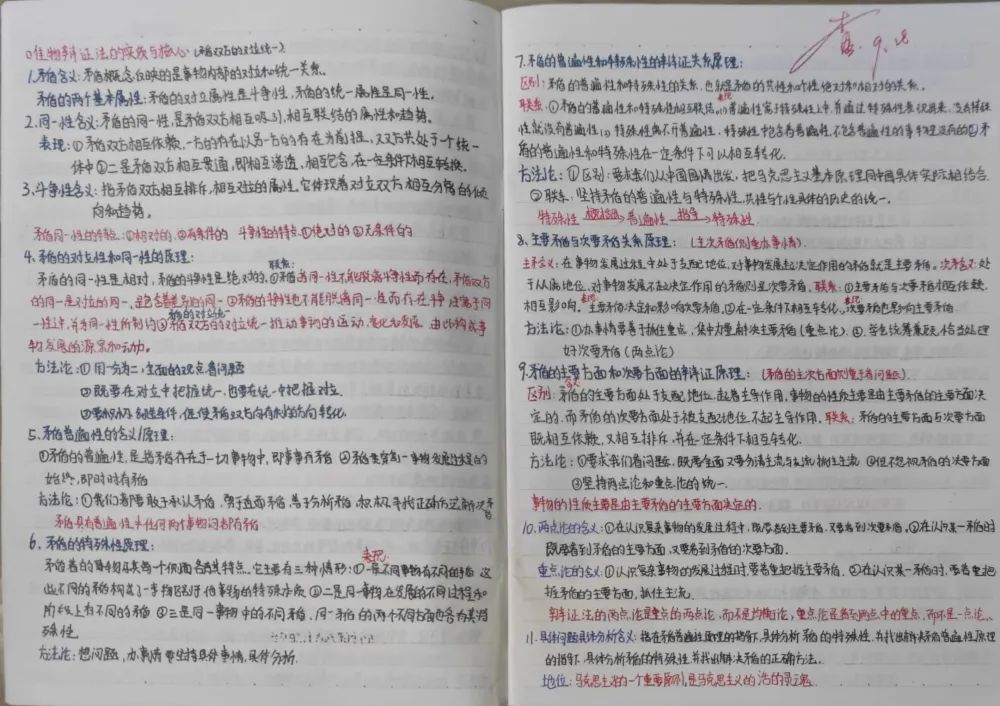 唯物辩证法的实质与核心:(矛盾双方的对立统一)
1.矛盾含义:矛盾概念反映的是事物内部的对立和统一关系。
矛盾的两个基本属性:矛盾的对立属性是斗争性,矛盾的统一属性是同一性。
2.同一性含义:矛盾的同一性,是矛盾双方相互吸引,相互联结的属性和趋势。
表现:①矛盾双方相互依赖,一方的存在以另一方的存在为前提,双方共处于一个统
一体中②二是矛盾双方相互贯通,即相互渗透,相互包含,在一定条件下相互转换。
3.斗争性含义:指矛盾双方相互排斥,相互对立的属性,它体现着对立双方相互分离的倾
向和趋势。
矛盾同一性的特点:①相对的 ②有条件的 斗争性的特点:①绝对的②无条件的
4.矛盾的对立性和同一性的原理:
联系:
矛盾的同一性是相对,矛盾的斗争性是绝对的,①矛盾的同一不能脱离斗争性而存在,矛盾双方
的同一是对立的同一,是包含着差异的同一②矛盾的斗争性也不能脱离同一性而存在,斗争性寓于同
一性之中,并为同一性所制约③矛盾双方的对立统一推动事物的运动,变化和发展,由此构成事
物发展的源泉和动力。
方法论:①用一分为二,全面的观点看问题
②既要在对立中把握统一,也要在统一中把握对立.
③要积极创造条件,促使矛盾双方向有利的方向转化.
5.矛盾普遍性的含义/原理:
①矛盾的普遍性,是指矛盾存在于一切事物中,即事事有矛盾 ②矛盾贯穿每一事物发展过程的
始终,即时时有矛盾
方法论:①我们都要敢于承认矛盾,勇于直面矛盾,善于分析矛盾,积极寻找正确方法解决矛盾
矛盾具有普遍性,并任何两个事物间都有矛盾
6.矛盾的特殊性原理:
表现:
矛盾着的事物及其每一个侧面各有其特点,它主要有三种情形:①一是不同事物有不同的矛盾,这
些不同的矛盾构成了一事物区别于他事物的特殊本质 ②二是同一事物在发展的不同过程和
阶段上有不同的矛盾 ③三是同一事物中的不同矛盾,同一矛盾的两个不同方面也各有其特
殊性.
方法论:想问题,办事情要坚持具体事情,具体分析.
查 9.28
7.矛盾的普遍性和特殊性的辩证关系原理:
区别:矛盾的普遍性和特殊性的关系,也就是矛盾的共性和个性,绝对和相对的关系。
联系:①矛盾的普遍性和特殊性相互联结,(1)普遍性寓于特殊性之中,并通过特殊性表现出来,没有特殊
性就没有普遍性;(2)特殊性离不开普遍性,特殊性中包含着普遍性,不包含普遍性的事物是没有的②矛
盾的普遍性和特殊性在一定条件下可以相互转化.
方法论:①区别:要求我们从中国国情出发,把马克思主义基本原理同中国具体实际相结合.
②联系:坚持矛盾的普遍性与特殊性,共性与个性具体的历史的统一.
特殊性 概括出 普遍性 指导 特殊性.
8.主要矛盾与次要矛盾关系原理:(主次矛盾侧重办事情).
主矛含义:在事物发展过程中处于支配地位,对事物发展起决定作用的矛盾就是主要矛盾。次矛含义:处
于从属地位,对事物发展不起决定作用的矛盾则是次要矛盾。联系:①主要矛盾与次要矛盾相互依赖,
相互影响。主要矛盾决定和影响次要矛盾,②在一定条件下相互转化,次要矛盾也影响主要矛盾
方法论:①办事情要善于抓住重点,集中力量解决主要矛盾(重点论),②学会统筹兼顾,恰当处理
好次要矛盾(两点论)
9.矛盾的主要方面和次要方面的辩证原理:(矛盾的主次方面侧重看问题).
含义
区别:矛盾的主要方面处于支配地位,起着主导作用,事物的性质主要是由主要矛盾的主要方面决
定的,而矛盾的次要方面处于被支配地位,不起主导作用。联系:矛盾的主要方面与次要方面
既相互依赖,又相互排斥,并在一定条件下相互转化.
方法论:①要求我们看问题,既要全面又要分清主流与支流,抓住主流 ②但不忽视矛盾的次要方面
③坚持两点论和重点论的统一.
事物的性质主要是由主要矛盾的主要方面决定的.
10.两点论的含义:①在认识复杂事物的发展过程中,既要看到主要矛盾,又要看到次要矛盾,②在认识某一矛盾时
既要看到矛盾的主要方面,又要看到矛盾的次要方面.
重点论的含义:①认识复杂事物的发展过程时,要着重把握主要矛盾 ②在认识某一矛盾时,要着重把
握矛盾的主要方面,抓住主流.
辩证法的两点论是重点的两点论,而不是均衡论,重点论是看到两点中的重点,而不是一点论。
11.具体问题具体分析含义:指在矛盾普遍性原理的指导下,具体分析矛盾的特殊性,并找出解决矛盾普遍性原理
的指导下,具体分析矛盾的特殊性,并找出解决矛盾的正确方法.
地位:马克思主义的一个重要原则,是马克思主义的活的灵魂.